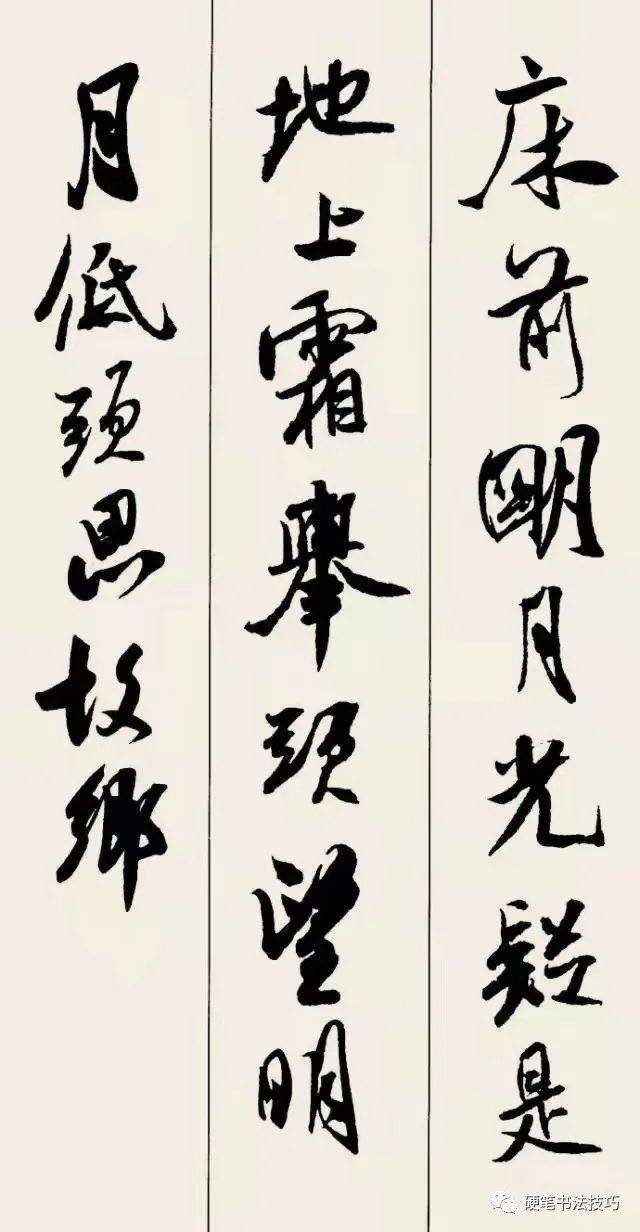 床前明月光疑是
地上霜舉頭望明
月低頭思故鄉
硬笔书法技巧